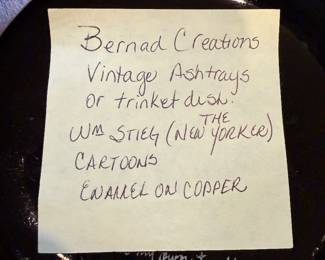 Bernad Creations
Vintage Ashtrays
or trinket dish.
WM STIEG (NEW THE YORKER)
CARTOONS
ENAMEL ON COPPER
my